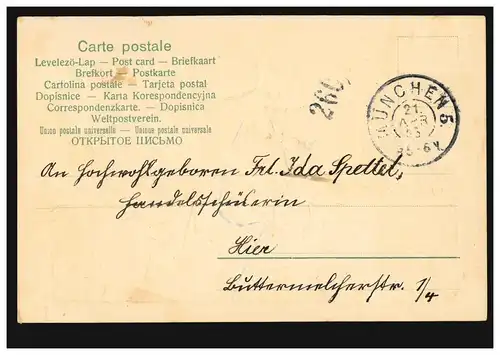 Carte postale
Levelező-Lap — Post card — Briefkaart
Brefkort — Postkarte
Cartolina postale — Tarjeta postal
Dopisnice — Karta Korespondencyjna
Correspondenzkarte. — Dopisnica
Weltpostverein.
Union postale universelle — Unione postale universale
ОТКРЫТОЕ ПИСЬМО
260
MÜNCHEN 5.
21
An Hochwohlgeboren Frl. Ida Spettel,
Handelsschülerin
Hier
Buttermelcherstr. 1/4